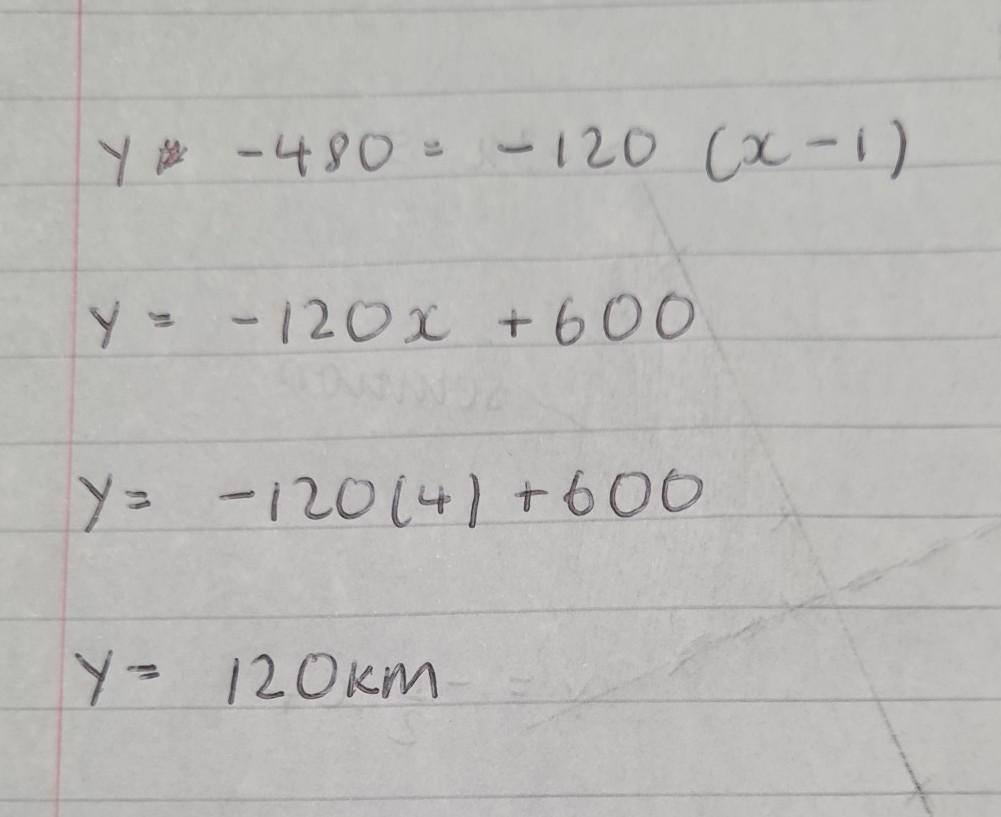 y -480 = -120 (x-1)
y = -120x +600
y = -120(4) +600
y = 120km